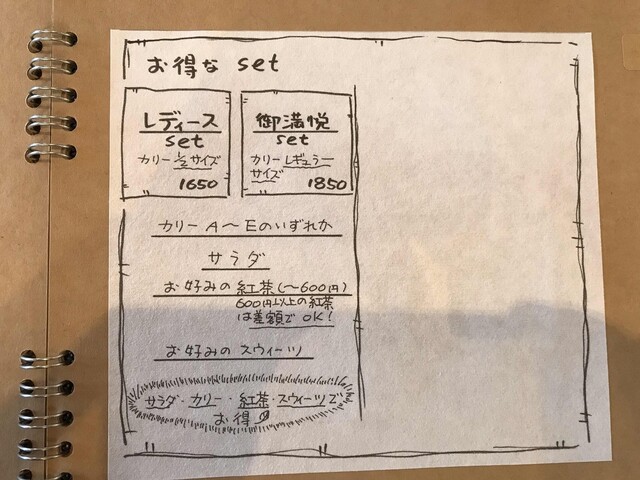 お得な set
レディース
set
カリー 1/2サイズ
1650
御満悦
set
カリー レギュラー
サイズ
1850
カリー A〜Eのいずれか
サラダ
お好みの紅茶(〜600円)
600円以上の紅茶
は差額でOK!
お好みのスウィーツ
サラダ・カリー・紅茶・スウィーツで
お得